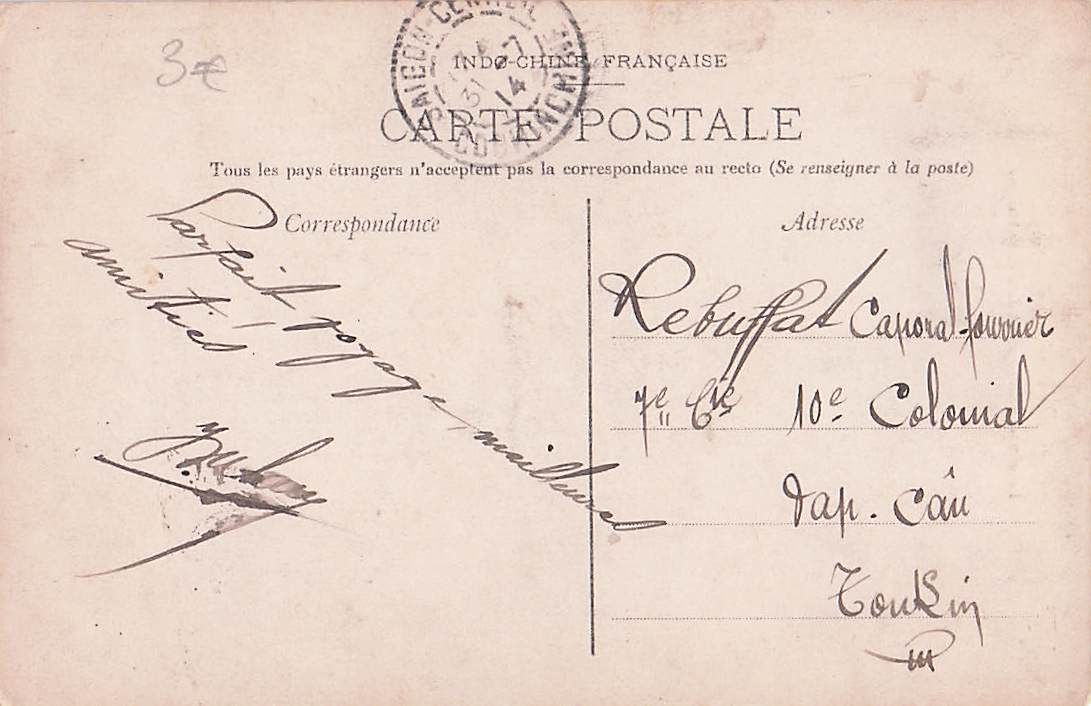 3€
SAIGON-CENTRAL
31 -7
14
COCHINCHINE
INDO-CHINE FRANÇAISE
CARTE POSTALE
Tous les pays étrangers n'acceptent pas la correspondance au recto (Se renseigner à la poste)
Correspondance
Parfait voyage, meilleures
amitiés
Adresse
Rebuffat Caporal-fourrier
7e Cie 10e Colonial
Dap. Câu
Tonkin